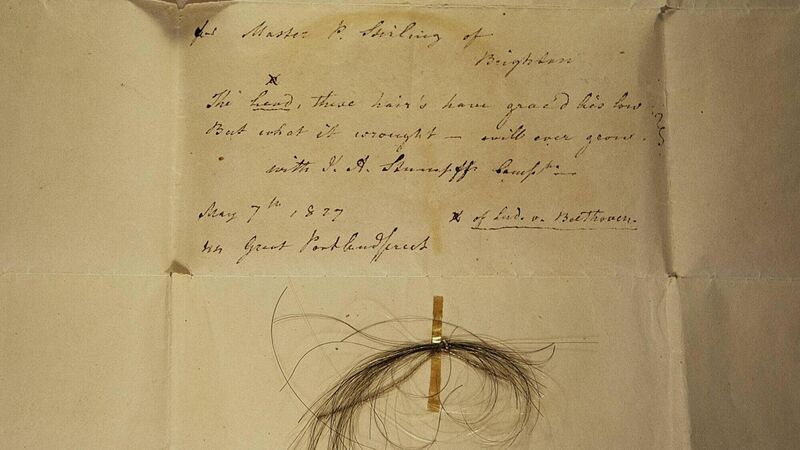 for Master P. Stirling of
Brighton
The head, these hair's have grac'd lies low
But what it wrought – will ever grow.
with J. A. Stumpff's Compts
May 7th 1827
of Lud. v. Beethoven.
44 Great Portland Street